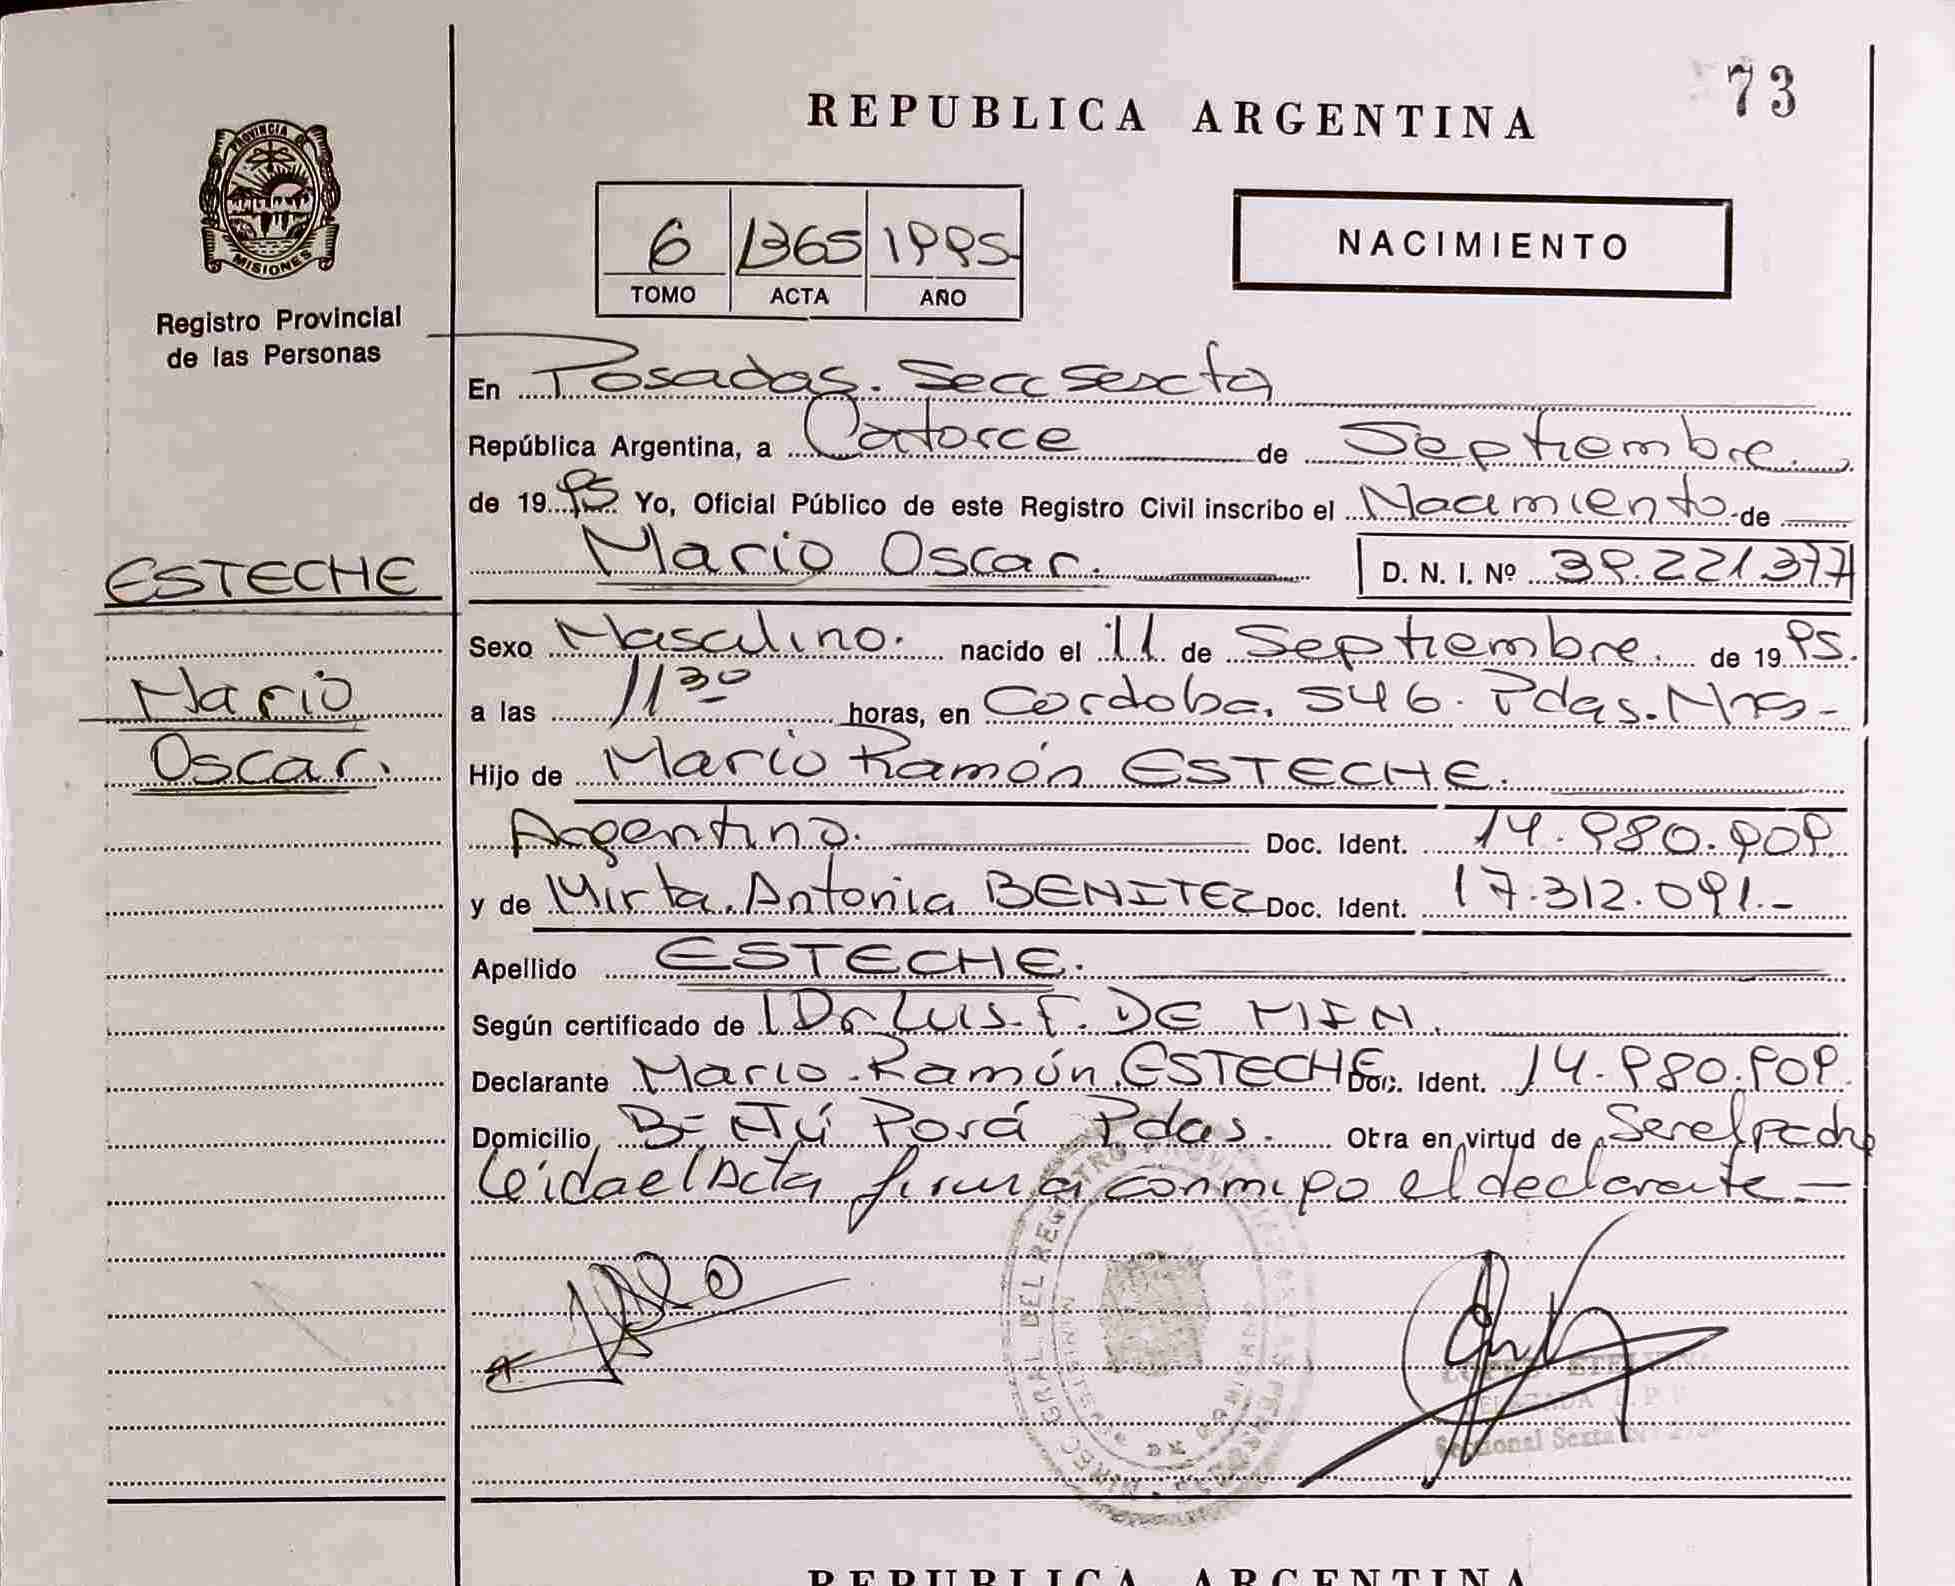 REPUBLICA ARGENTINA
73
PROVINCIA DE
MISIONES
Registro Provincial
de las Personas
6 1365 1995
TOMO ACTA AÑO
NACIMIENTO
En Posadas. Secc Sexta
República Argentina, a Catorce de Septiembre.
de 1995 Yo, Oficial Público de este Registro Civil inscribo el Nacimiento de
Mario Oscar. D. N. I. Nº 39.221.377
ESTECHE
Mario
Oscar.
Sexo Masculino. nacido el 11 de Septiembre. de 1995.
a las 11 30 horas, en Cordoba. 546. Pdas. Mnes-
Hijo de Mario Ramón ESTECHE.
Argentino. Doc. Ident. 14.980.909.
y de Mirta. Antonia BENITEZ Doc. Ident. 17.312.091.-
Apellido ESTECHE.
Según certificado de Dr Luis. F. DE
Declarante Mario. Ramón. ESTECHE. Doc. Ident. 14.980.909.
Domicilio Porá Pdas. Obra en virtud de Ser el padre
leída el Acta firma conmigo el declarante -
DEL REGISTRO PROVINCIAL DE LAS PERSONAS
MINISTERIO DE GOBIERNO
Seccional Sexta
REPUBLICA ARGENTINA